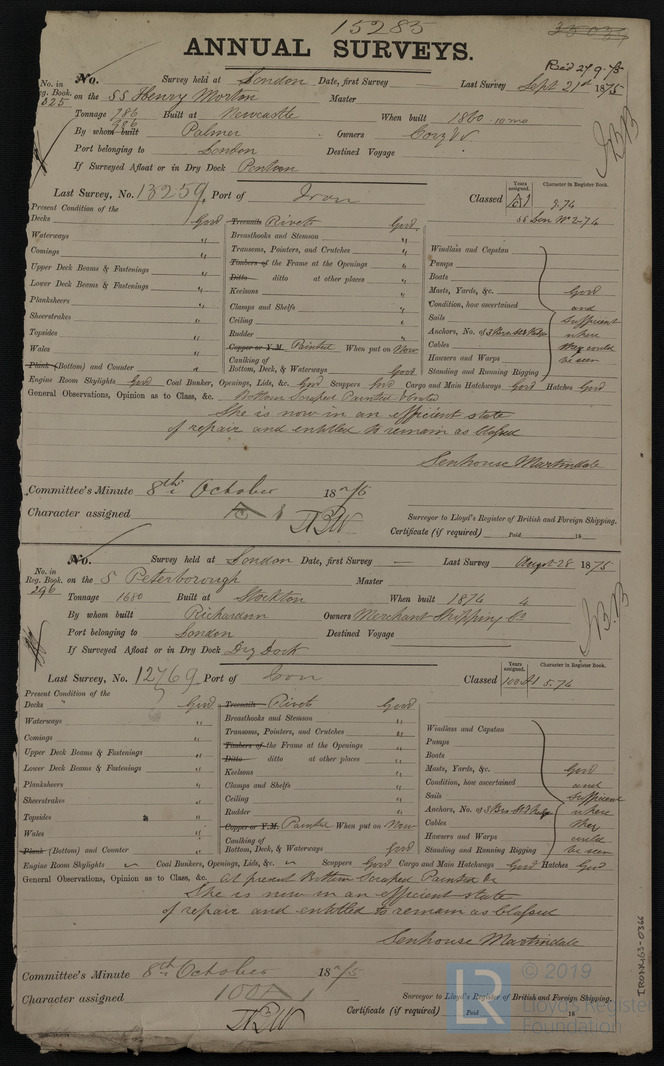 15285
ANNUAL SURVEYS.
Rec'd 27.9.75
No. in Reg. Book. 525
No. Survey held at London Date, first Survey Last Survey Sept 21st 1875
on the SS Henry Morton Master
Tonnage 786 Built at Newcastle When built 1860 10 mo
By whom built Palmer Owners
Port belonging to London Destined Voyage
If Surveyed Afloat or in Dry Dock Pontoon
Last Survey, No. 13259, Port of Iron Classed
Years assigned. Character in Register Book.
A1 9.74
SS Lon No 2-74
Present Condition of the
Decks Good
Waterways "
Comings "
Upper Deck Beams & Fastenings "
Lower Deck Beams & Fastenings "
Planksheers "
Sheerstrakes "
Topsides "
Wales "
Plank (Bottom) and Counter "
Treenails Rivets Good
Breasthooks and Stemson "
Transoms, Pointers, and Crutches "
Timbers of the Frame at the Openings "
Ditto ditto at other places "
Keelsons "
Clamps and Shelfs "
Ceiling "
Rudder "
Copper or Y.M. Painted When put on Now
Caulking of Bottom, Deck, & Waterways Good
Windlass and Capstan
Pumps
Boats
Masts, Yards, &c.
Condition, how ascertained
Sails
Anchors, No. of
Cables
Hawsers and Warps
Standing and Running Rigging
Good and Sufficient where they could be seen
Engine Room Skylights Good Coal Bunker, Openings, Lids, &c. Good Scuppers Good Cargo and Main Hatchways Good Hatches Good
General Observations, Opinion as to Class, &c. Bottom Scraped Painted & Coated
She is now in an efficient state
of repair and entitled to remain as Classed
Senhouse Martindale
Committee's Minute 8th October 1875
Character assigned
Surveyor to Lloyd's Register of British and Foreign Shipping.
Certificate (if required) Paid 18
No. in Reg. Book. 296
No. Survey held at London Date, first Survey — Last Survey Augst 28 1875
on the S Peterborough Master
Tonnage 1680 Built at Stockton When built 1874 4
By whom built Richardson Owners Merchant Shipping Co
Port belonging to London Destined Voyage
If Surveyed Afloat or in Dry Dock Dry Dock
Last Survey, No. 12769 Port of Iron Classed
Years assigned. Character in Register Book.
100 A1 5.74
Present Condition of the
Decks Good
Waterways "
Comings "
Upper Deck Beams & Fastenings "
Lower Deck Beams & Fastenings "
Planksheers "
Sheerstrakes "
Topsides "
Wales "
Plank (Bottom) and Counter "
Treenails Rivets Good
Breasthooks and Stemson "
Transoms, Pointers, and Crutches "
Timbers of the Frame at the Openings "
Ditto ditto at other places "
Keelsons "
Clamps and Shelfs "
Ceiling "
Rudder "
Copper or Y.M. Painted When put on Now
Caulking of Bottom, Deck, & Waterways Good
Windlass and Capstan
Pumps
Boats
Masts, Yards, &c.
Condition, how ascertained
Sails
Anchors, No. of
Cables
Hawsers and Warps
Standing and Running Rigging
Good and Sufficient where they could be seen
Engine Room Skylights " Coal Bunkers, Openings, Lids, &c. " Scuppers Good Cargo and Main Hatchways Good Hatches Good
General Observations, Opinion as to Class, &c. At present Bottom Scraped Painted &c
She is now in an efficient state
of repair and entitled to remain as Classed
Senhouse Martindale
Committee's Minute 8th October 1875
Character assigned 100A1
Surveyor to Lloyd's Register of British and Foreign Shipping.
Certificate (if required) Paid 18
IRON463-0366
LR © 2019
Lloyd's Register
Foundation